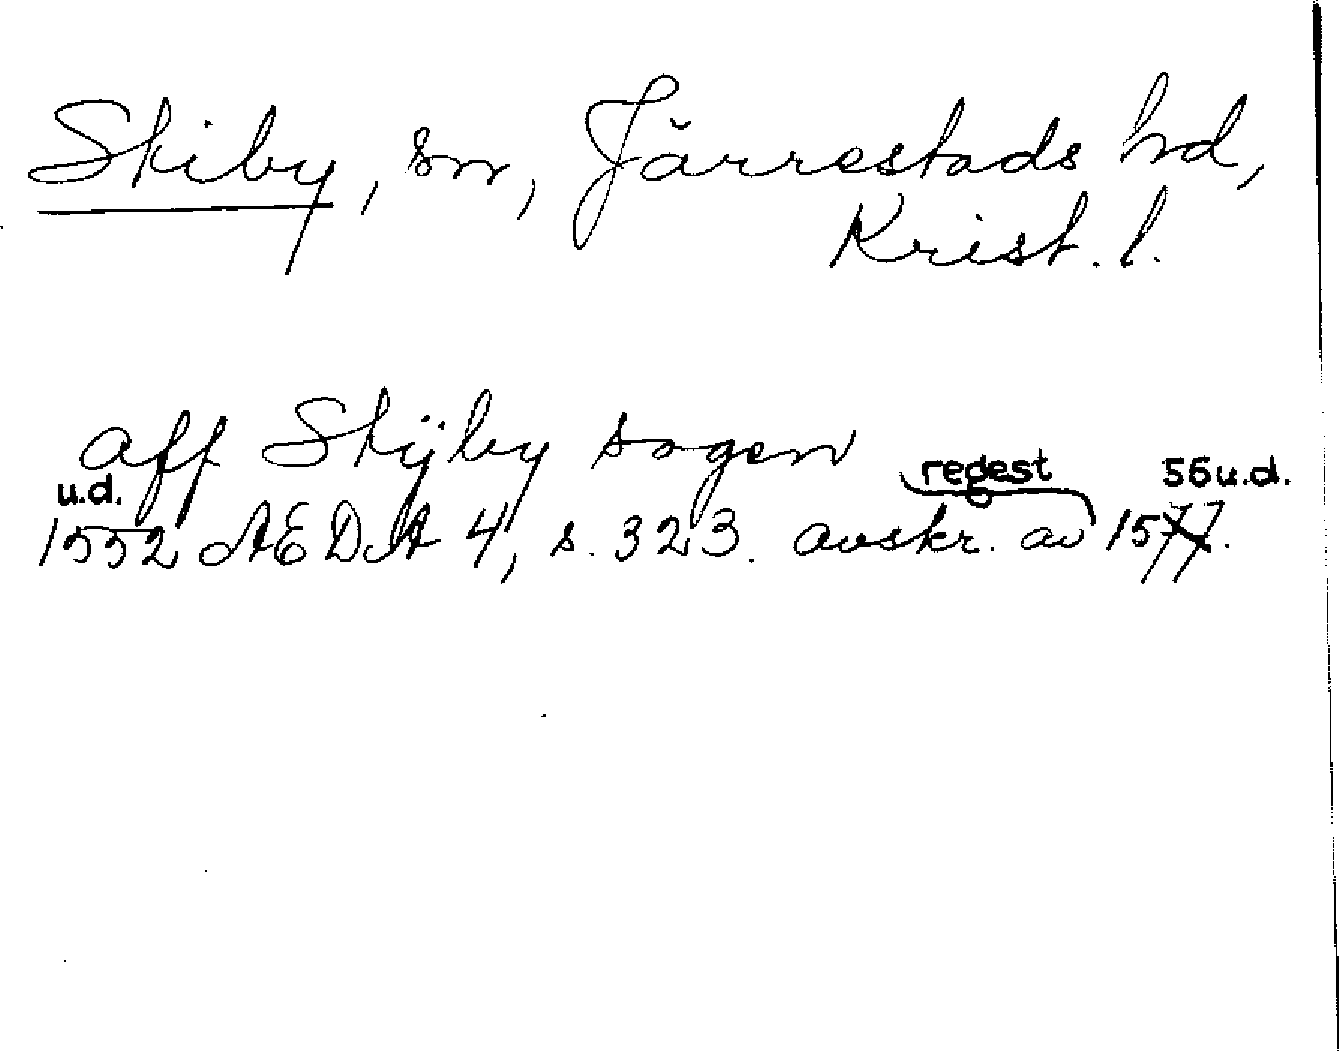 Skiby, sn, Järrestads hd,
Krist. l.
aff Skÿby sogen
u.d. regest 56 u.d.
1552 AEDA 4, s. 323. avskr. av 1577.